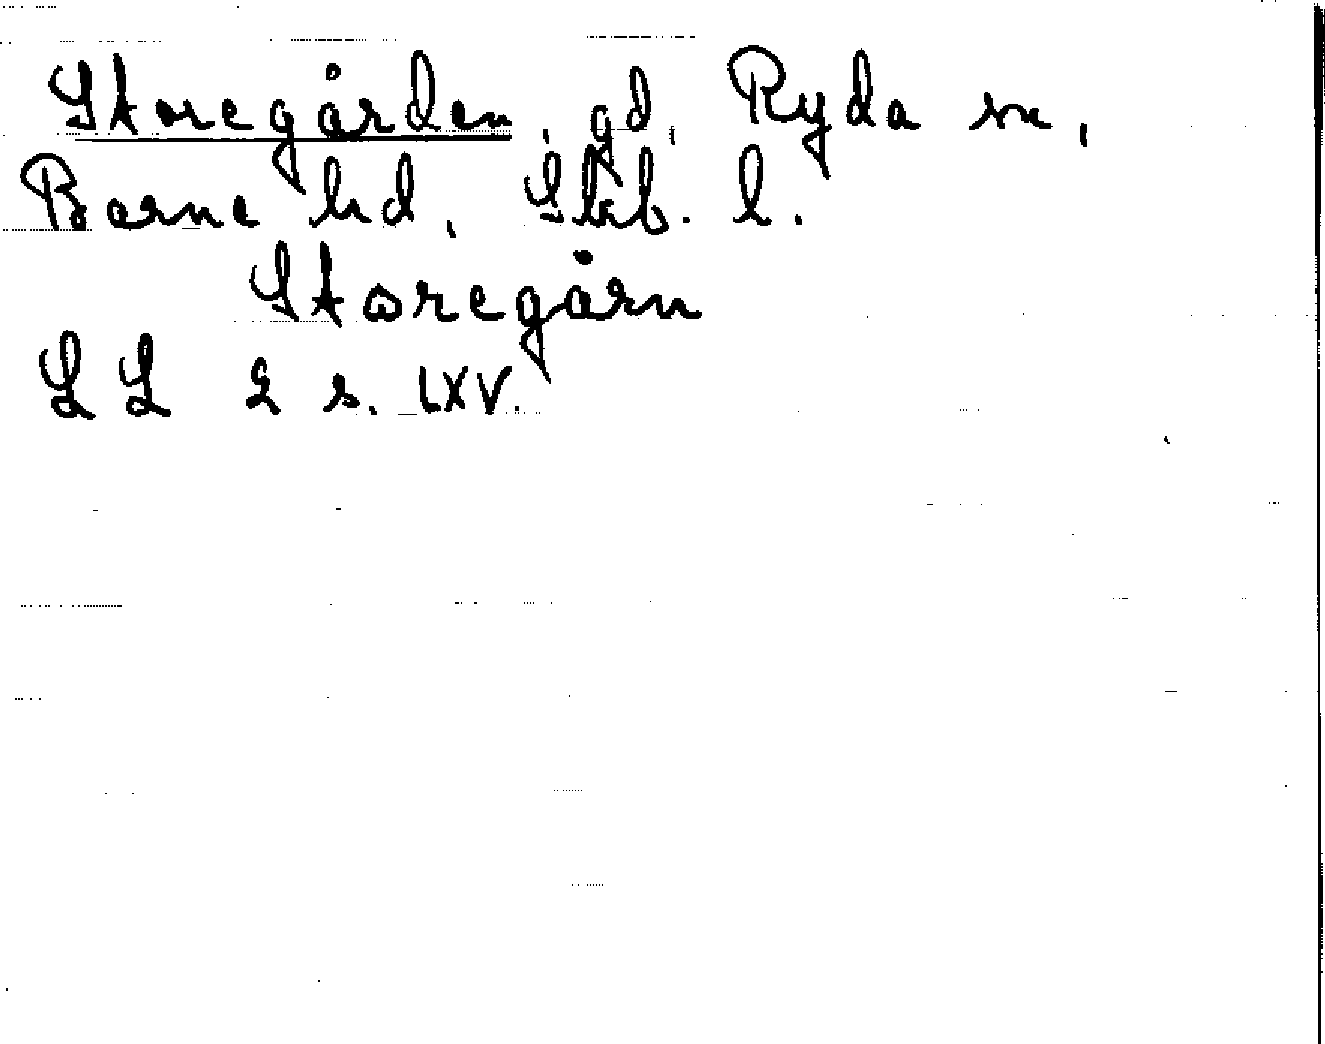 Storegården, gd, Ryda sn,
Barne hd, Skab. l.
Storegårn
LL 2 s. LXV.